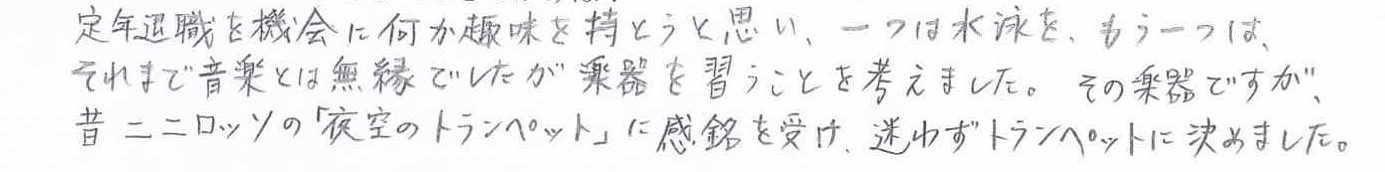 定年退職を機会に何か趣味を持とうと思い、一つは水泳を、もう一つは、
それまで音楽とは無縁でしたが楽器を習うことを考えました。その楽器ですが、
昔ニニロッソの「夜空のトランペット」に感銘を受け、迷わずトランペットに決めました。